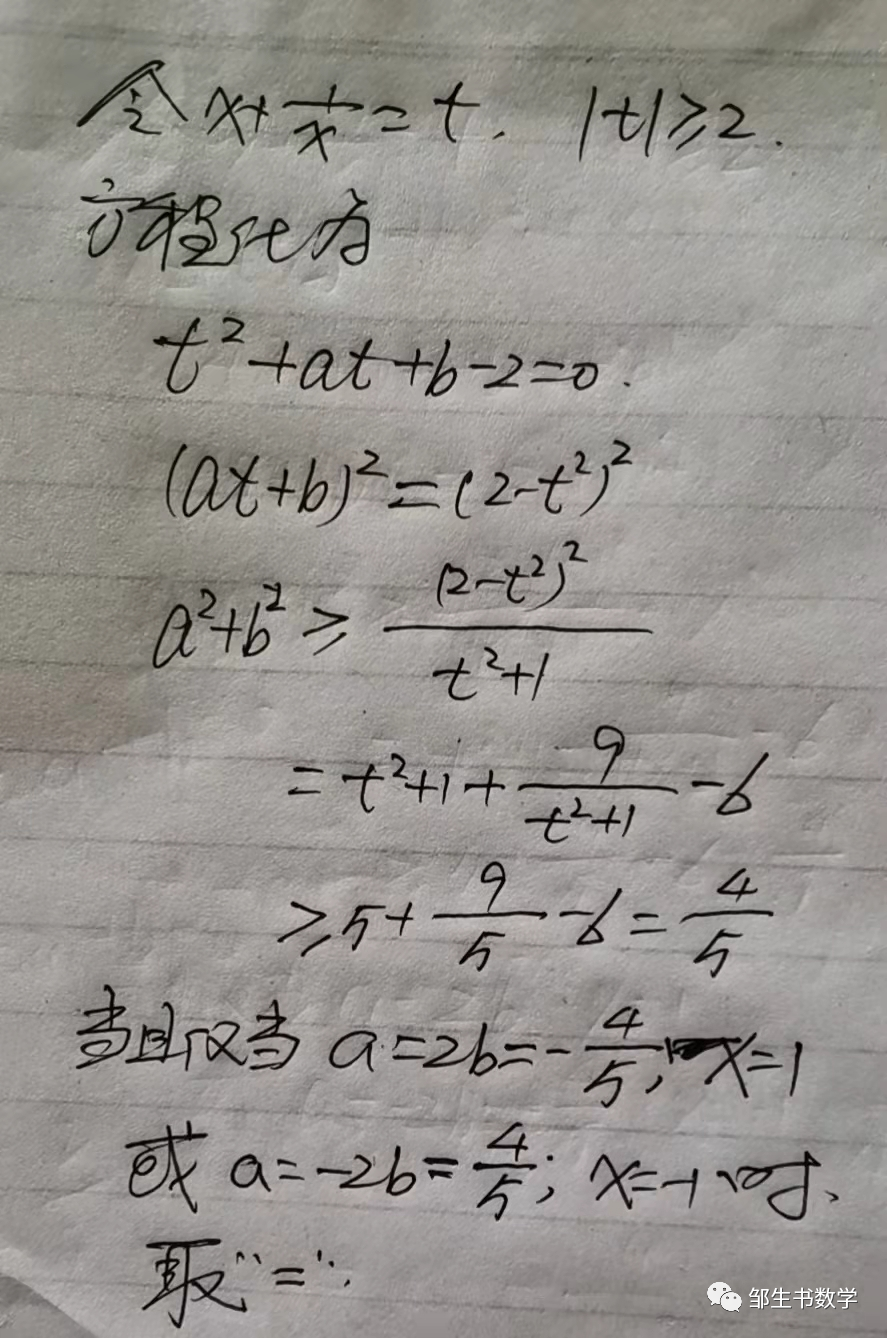 令 x+1/x=t. |t|≥2.
方程化为
t²+at+b-2=0.
(at+b)²=(2-t²)²
a²+b²≥(2-t²)²/(t²+1)
=t²+1+9/(t²+1)-6
≥5+9/5-6=4/5
当且仅当 a=2b=-4/5, x=1
或 a=-2b=4/5; x=-1时、
取"=".
邹生书数学